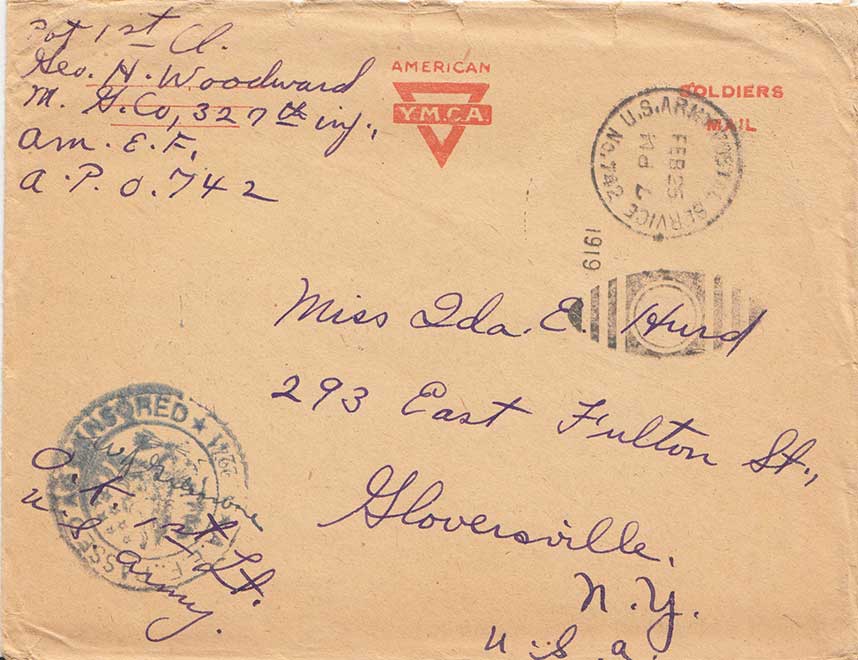 Pvt 1st Cl.
Geo. H. Woodward
M. G. Co, 327th inf.,
am. E. F.
a. P. O. 742
AMERICAN
Y.M.C.A.
SOLDIERS
MAIL
U.S. ARMY POSTAL SERVICE No. 742
FEB 25
7 PM
1919
Miss Ida. E. Hurd
293 East Fulton St.,
Gloversville.
N.Y.
U.S.a.
PASSED AS CENSORED
O.K. 1st Lt.
U.S. army.